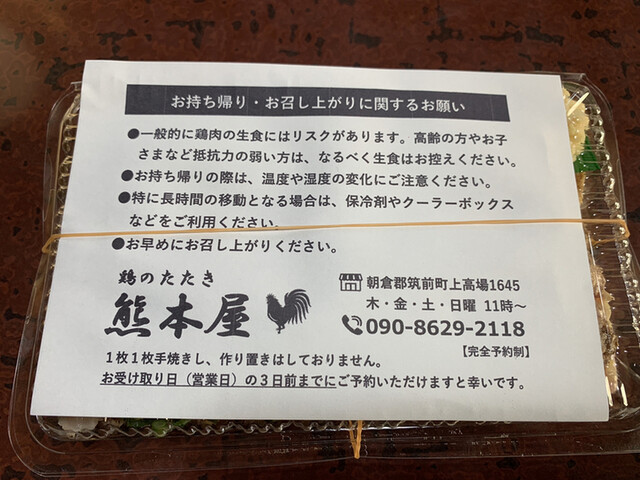 お持ち帰り・お召し上がりに関するお願い
●一般的に鶏肉の生食にはリスクがあります。高齢の方やお子
さまなど抵抗力の弱い方は、なるべく生食はお控えください。
●お持ち帰りの際は、温度や湿度の変化にご注意ください。
●特に長時間の移動となる場合は、保冷剤やクーラーボックス
などをご利用ください。
●お早めにお召し上がりください。
鶏のたたき
熊本屋
朝倉郡筑前町上高場1645
木・金・土・日曜 11時～
090-8629-2118
【完全予約制】
1枚1枚手焼きし、作り置きはしておりません。
お受け取り日（営業日）の3日前までにご予約いただけますと幸いです。